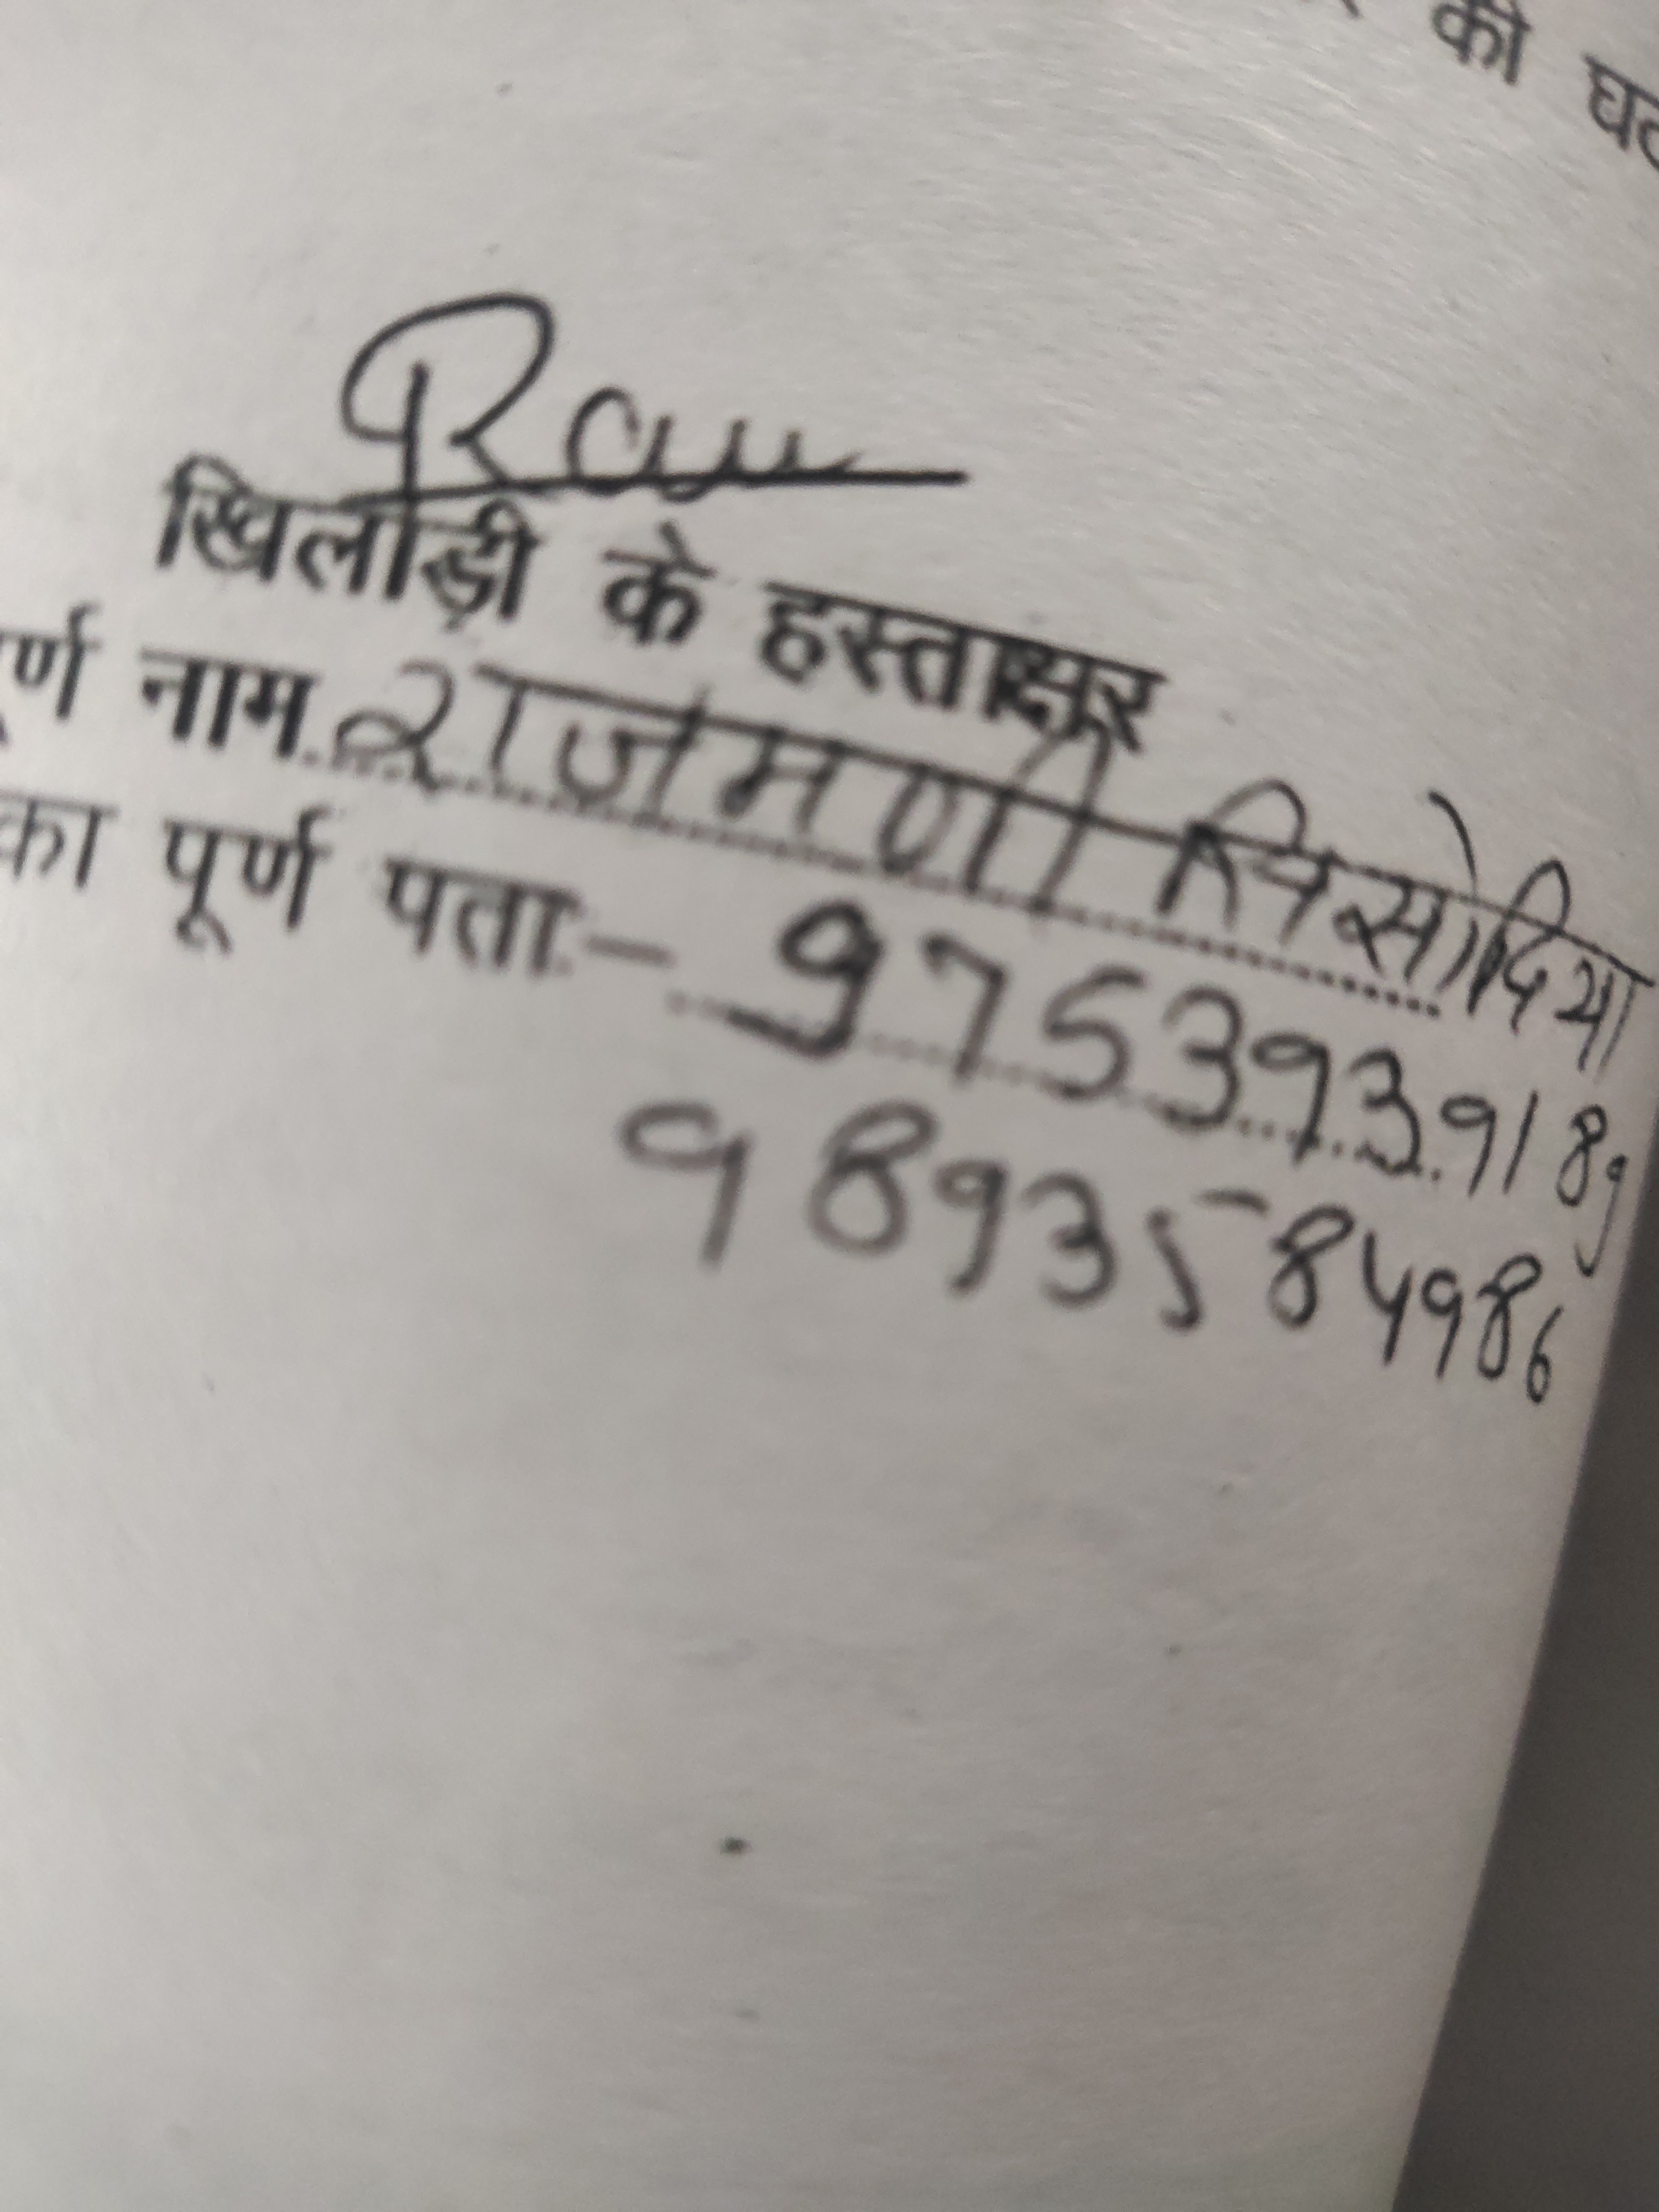 की
Ram
खिलाड़ी के हस्ताक्षर
पूर्ण नाम राजमणी सिसोदिया
का पूर्ण पता:- 9753939189
9893584986